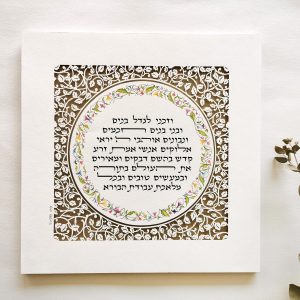 וזכני לגדל בנים
ובני בנים חכמים
ונבונים אוהבי ה׳ יראי
אלוקים אנשי אמת זרע
קדש בהשם דבקים ומאירים
את העולם בתורה
ובמעשים טובים ובכל
מלאכת עבודת הבורא